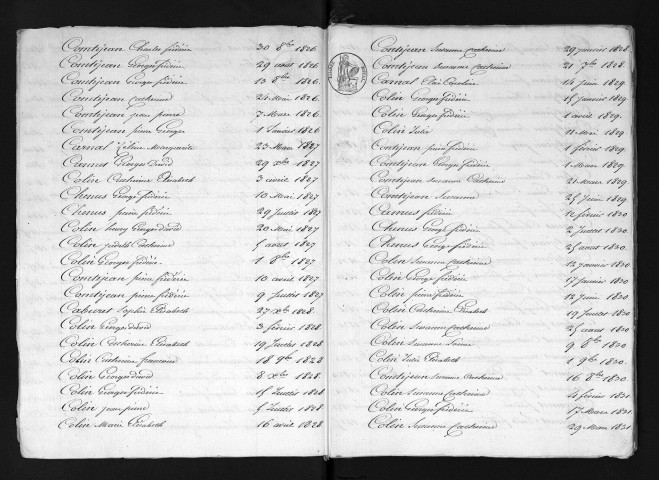 Comtijean Charles frédéric 30 8bre 1826
Comtijean George frédéric 29 aout 1826
Comtijean George frédéric 13 8bre 1826
Comtijean Catherine 24 Mai 1826
Comtijean jean pierre 7 Mars 1826
Comtijean pierre George 1 Janvier 1826
Camal Céline Marguerite 23 Mars 1827
Camus George David 29 Xbre 1827
Colin Catherine Elisabeth 3 avril 1827
Chenus George frédéric 10 Mai 1827
Chenus pierre frédéric 29 Juillet 1827
Colin henry George David 20 Mai 1827
Colin judith Catherine 5 aout 1827
Colin George frédéric 1 8bre 1827
Comtijean pierre frédéric 10 avril 1827
Comtijean pierre frédéric 9 Juillet 1827
Sophie Elisabeth 27 Xbre 1828
Colin George david 3 février 1828
Colin Catherine Elisabeth 19 Juillet 1828
Colin Catherine francoise 18 9bre 1828
Colin George David 8 Xbre 1828
Colin George frédéric 15 Juillet 1828
Colin jean pierre 5 Juillet 1828
Colin Marie Elisabeth 16 avril 1828
Comtijean Suzanne Catherine 29 janvier 1828
Comtijean Suzanne Catherine 21 7bre 1828
Camal Caroline 14 Juin 1829
Colin George frédéric 15 janvier 1829
Colin George frédéric 1 avril 1829
Colin Julie 11 Mai 1829
Comtijean pierre frédéric 1 février 1829
Comtijean George frédéric 1 Mars 1829
Comtijean Suzanne Catherine 21 Mars 1829
Comtijean Suzanne 25 Juin 1829
Camus frédéric 12 février 1830
Chenus George frédéric 2 Juillet 1830
Chenus George frédéric 25 aout 1830
Colin Suzanne Catherine 12 janvier 1830
Colin George frédéric 17 janvier 1830
Colin pierre frédéric 12 Juin 1830
Colin Catherine Elisabeth 19 Juillet 1830
Colin Suzanne Catherine 25 aout 1830
Colin Suzanne 9 8bre 1830
Colin Julie Elisabeth 1 9bre 1830
Comtijean Suzanne Catherine 16 8bre 1830
Colin Suzanne Catherine 4 février 1831
Colin George frédéric 17 Mars 1831
Colin Suzanne Catherine 29 Mars 1831